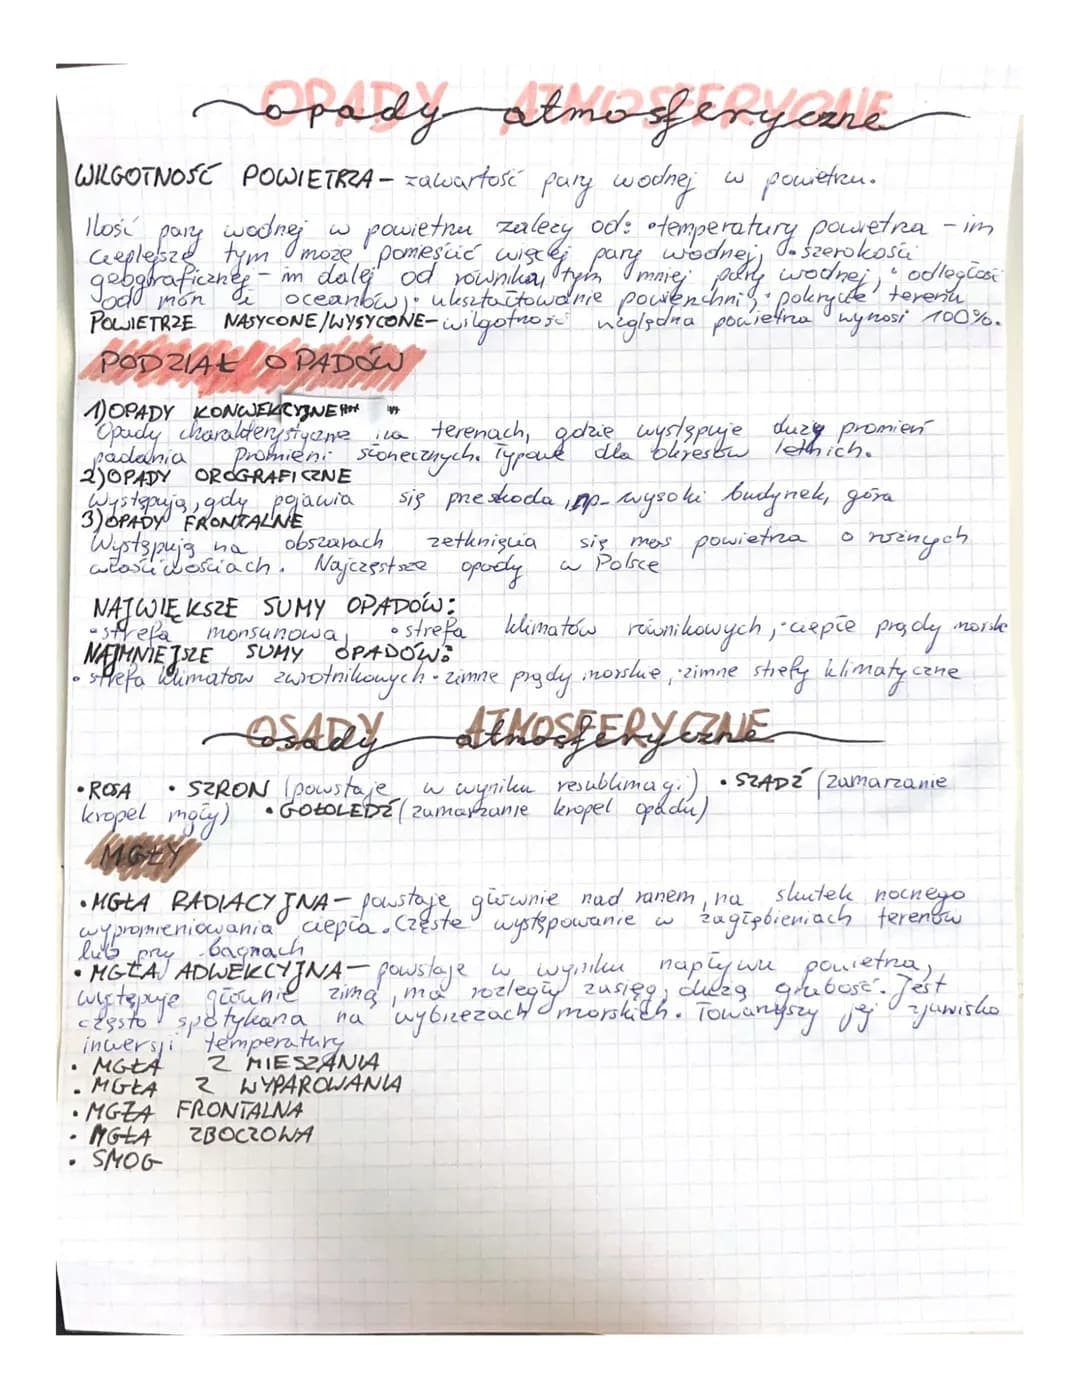 OPADY ATMOSFERYCZNE
opady atmosferyczne
WILGOTNOŚĆ POWIETRZA - zawartość pary wodnej w powietrzu.
Ilość pary wodnej w powietrzu zależy od: •temperatury powietrza - im
cieplejsze tym może pomieścić więcej pary wodnej, •szerokości
geograficznej - im dalej od równika, tym mniej pary wodnej, •odległość
od mórz i oceanów, •ukształtowanie powierzchni, •pokrycie terenu
POWIETRZE NASYCONE/WYSYCONE - wilgotność względna powietrza wynosi 100%.
PODZIAŁ OPADÓW
1) OPADY KONWEKCYJNE
Opady charakterystyczne na terenach, gdzie występuje duży promień
padania promieni słonecznych. Typowe dla okresów letnich.
2) OPADY OROGRAFICZNE
Występują, gdy pojawia się przeszkoda, np. wysoki budynek, góra
3) OPADY FRONTALNE
Występują na obszarach zetknięcia się mas powietrza o różnych
właściwościach. Najczęstsze opady w Polsce
NAJWIĘKSZE SUMY OPADÓW:
•strefa monsunowa, •strefa klimatów równikowych, •ciepłe prądy morskie
NAJMNIEJSZE SUMY OPADÓW:
•strefa klimatów zwrotnikowych •zimne prądy morskie, •zimne strefy klimatyczne
OSADY ATMOSFERYCZNE
osady atmosferyczne
•ROSA •SZRON (powstaje w wyniku resublimacji) •SZADŹ (zamarzanie
kropel mgły) •GOŁOLEDŹ (zamarzanie kropel opadu)
MGŁY
•MGŁA RADIACYJNA - powstaje głównie nad ranem, na skutek nocnego
wypromieniowania ciepła. Częste występowanie w zagłębieniach terenów
lub przy bagnach
•MGŁA ADWEKCYJNA - powstaje w wyniku napływu powietrza,
występuje głównie zimą, ma rozległy zasięg, dużą grubość. Jest
często spotykana na wybrzeżach morskich. Towarzyszy jej zjawisko
inwersji temperatury
• MGŁA Z MIESZANIA
• MGŁA Z WYPAROWANIA
• MGŁA FRONTALNA
• MGŁA ZBOCZOWA
• SMOG